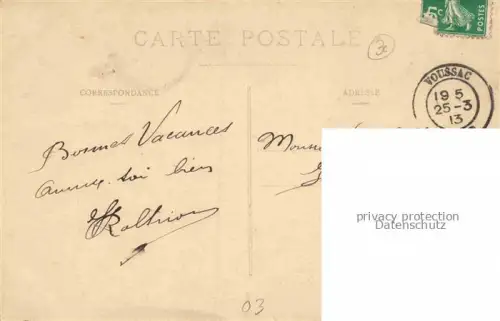 5c
POSTES
CARTE POSTALE
3e
CORRESPONDANCE
ADRESSE
VOUSSAC
19 5
25-3
13
Bonnes Vacances
amuse toi bien
privacy protection
Datenschutz
03